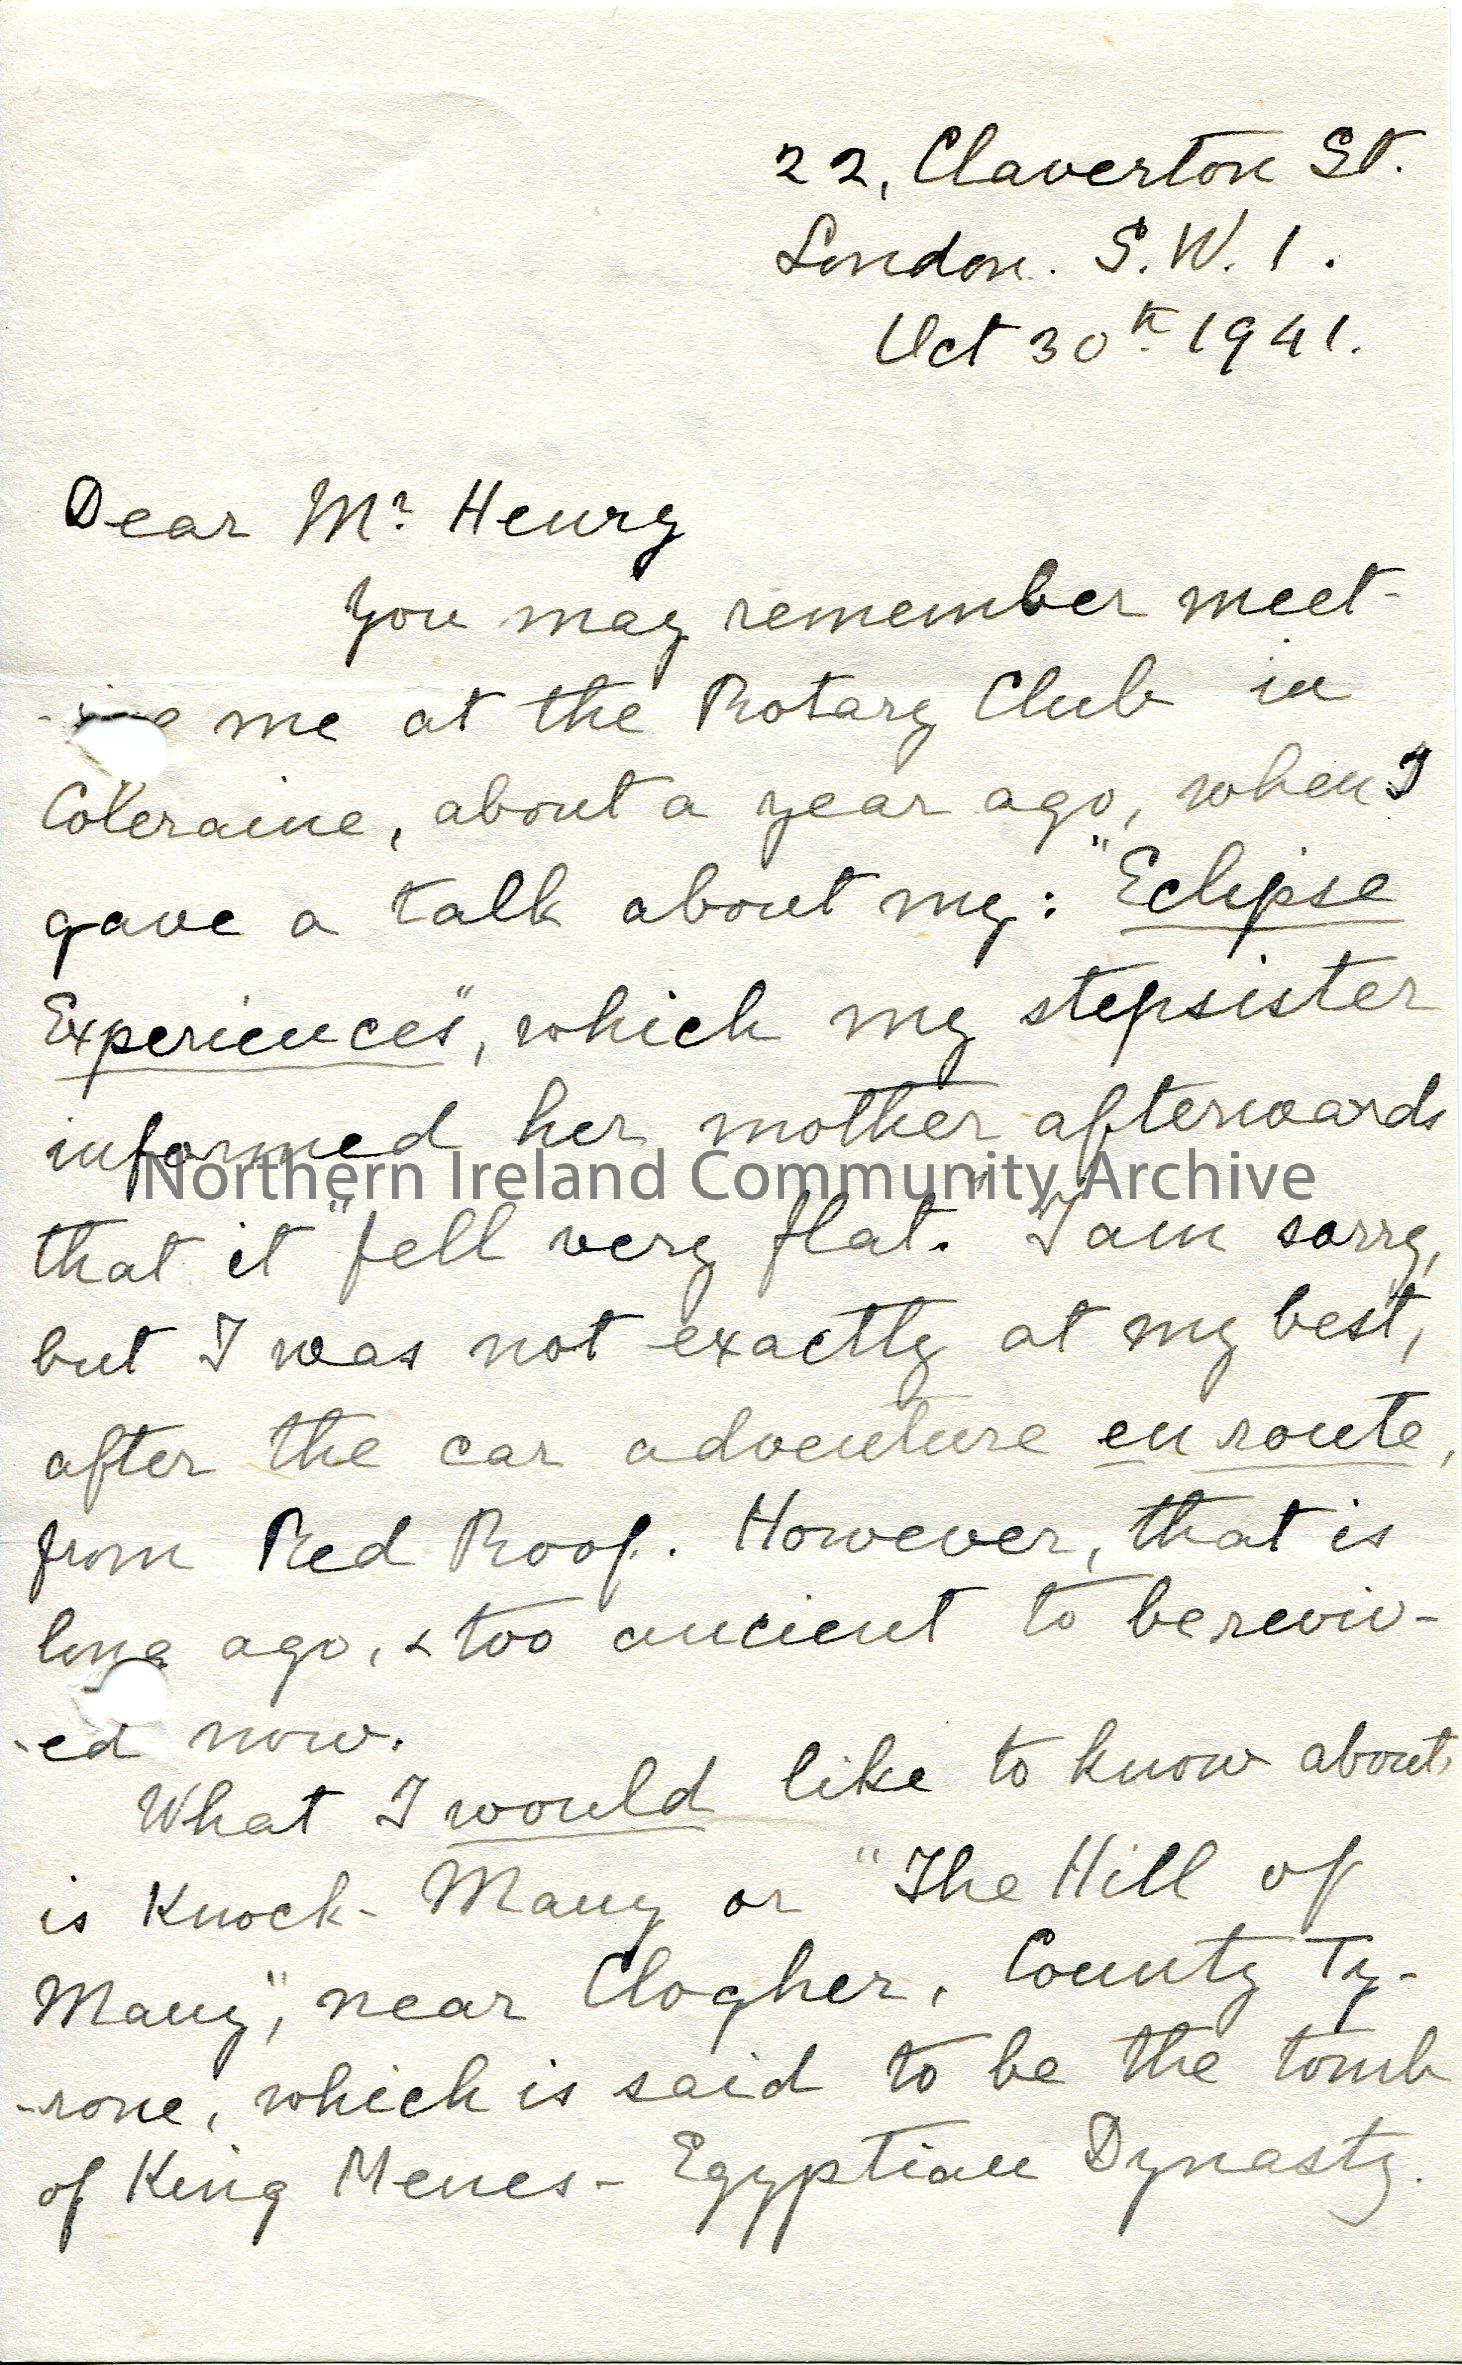 22, Claverton St.
London. S.W.1.
Oct 30th 1941.
Dear Mr. Henry
You may remember meet-
-ing me at the Rotary Club in
Coleraine, about a year ago, when I
gave a talk about my: "Eclipse
Experiences", which my stepsister
informed her mother afterwards
Northern Ireland Community Archive
that it "fell very flat." I am sorry,
but I was not exactly at my best,
after the car adventure en route,
from Red Roof. However, that is
long ago, & too ancient to be reviv-
-ed now.
What I would like to know about,
is Knock-Many or "The Hill of
Many", near Clogher, County Ty-
-rone, which is said to be the tomb
of King Menes - Egyptian Dynasty.